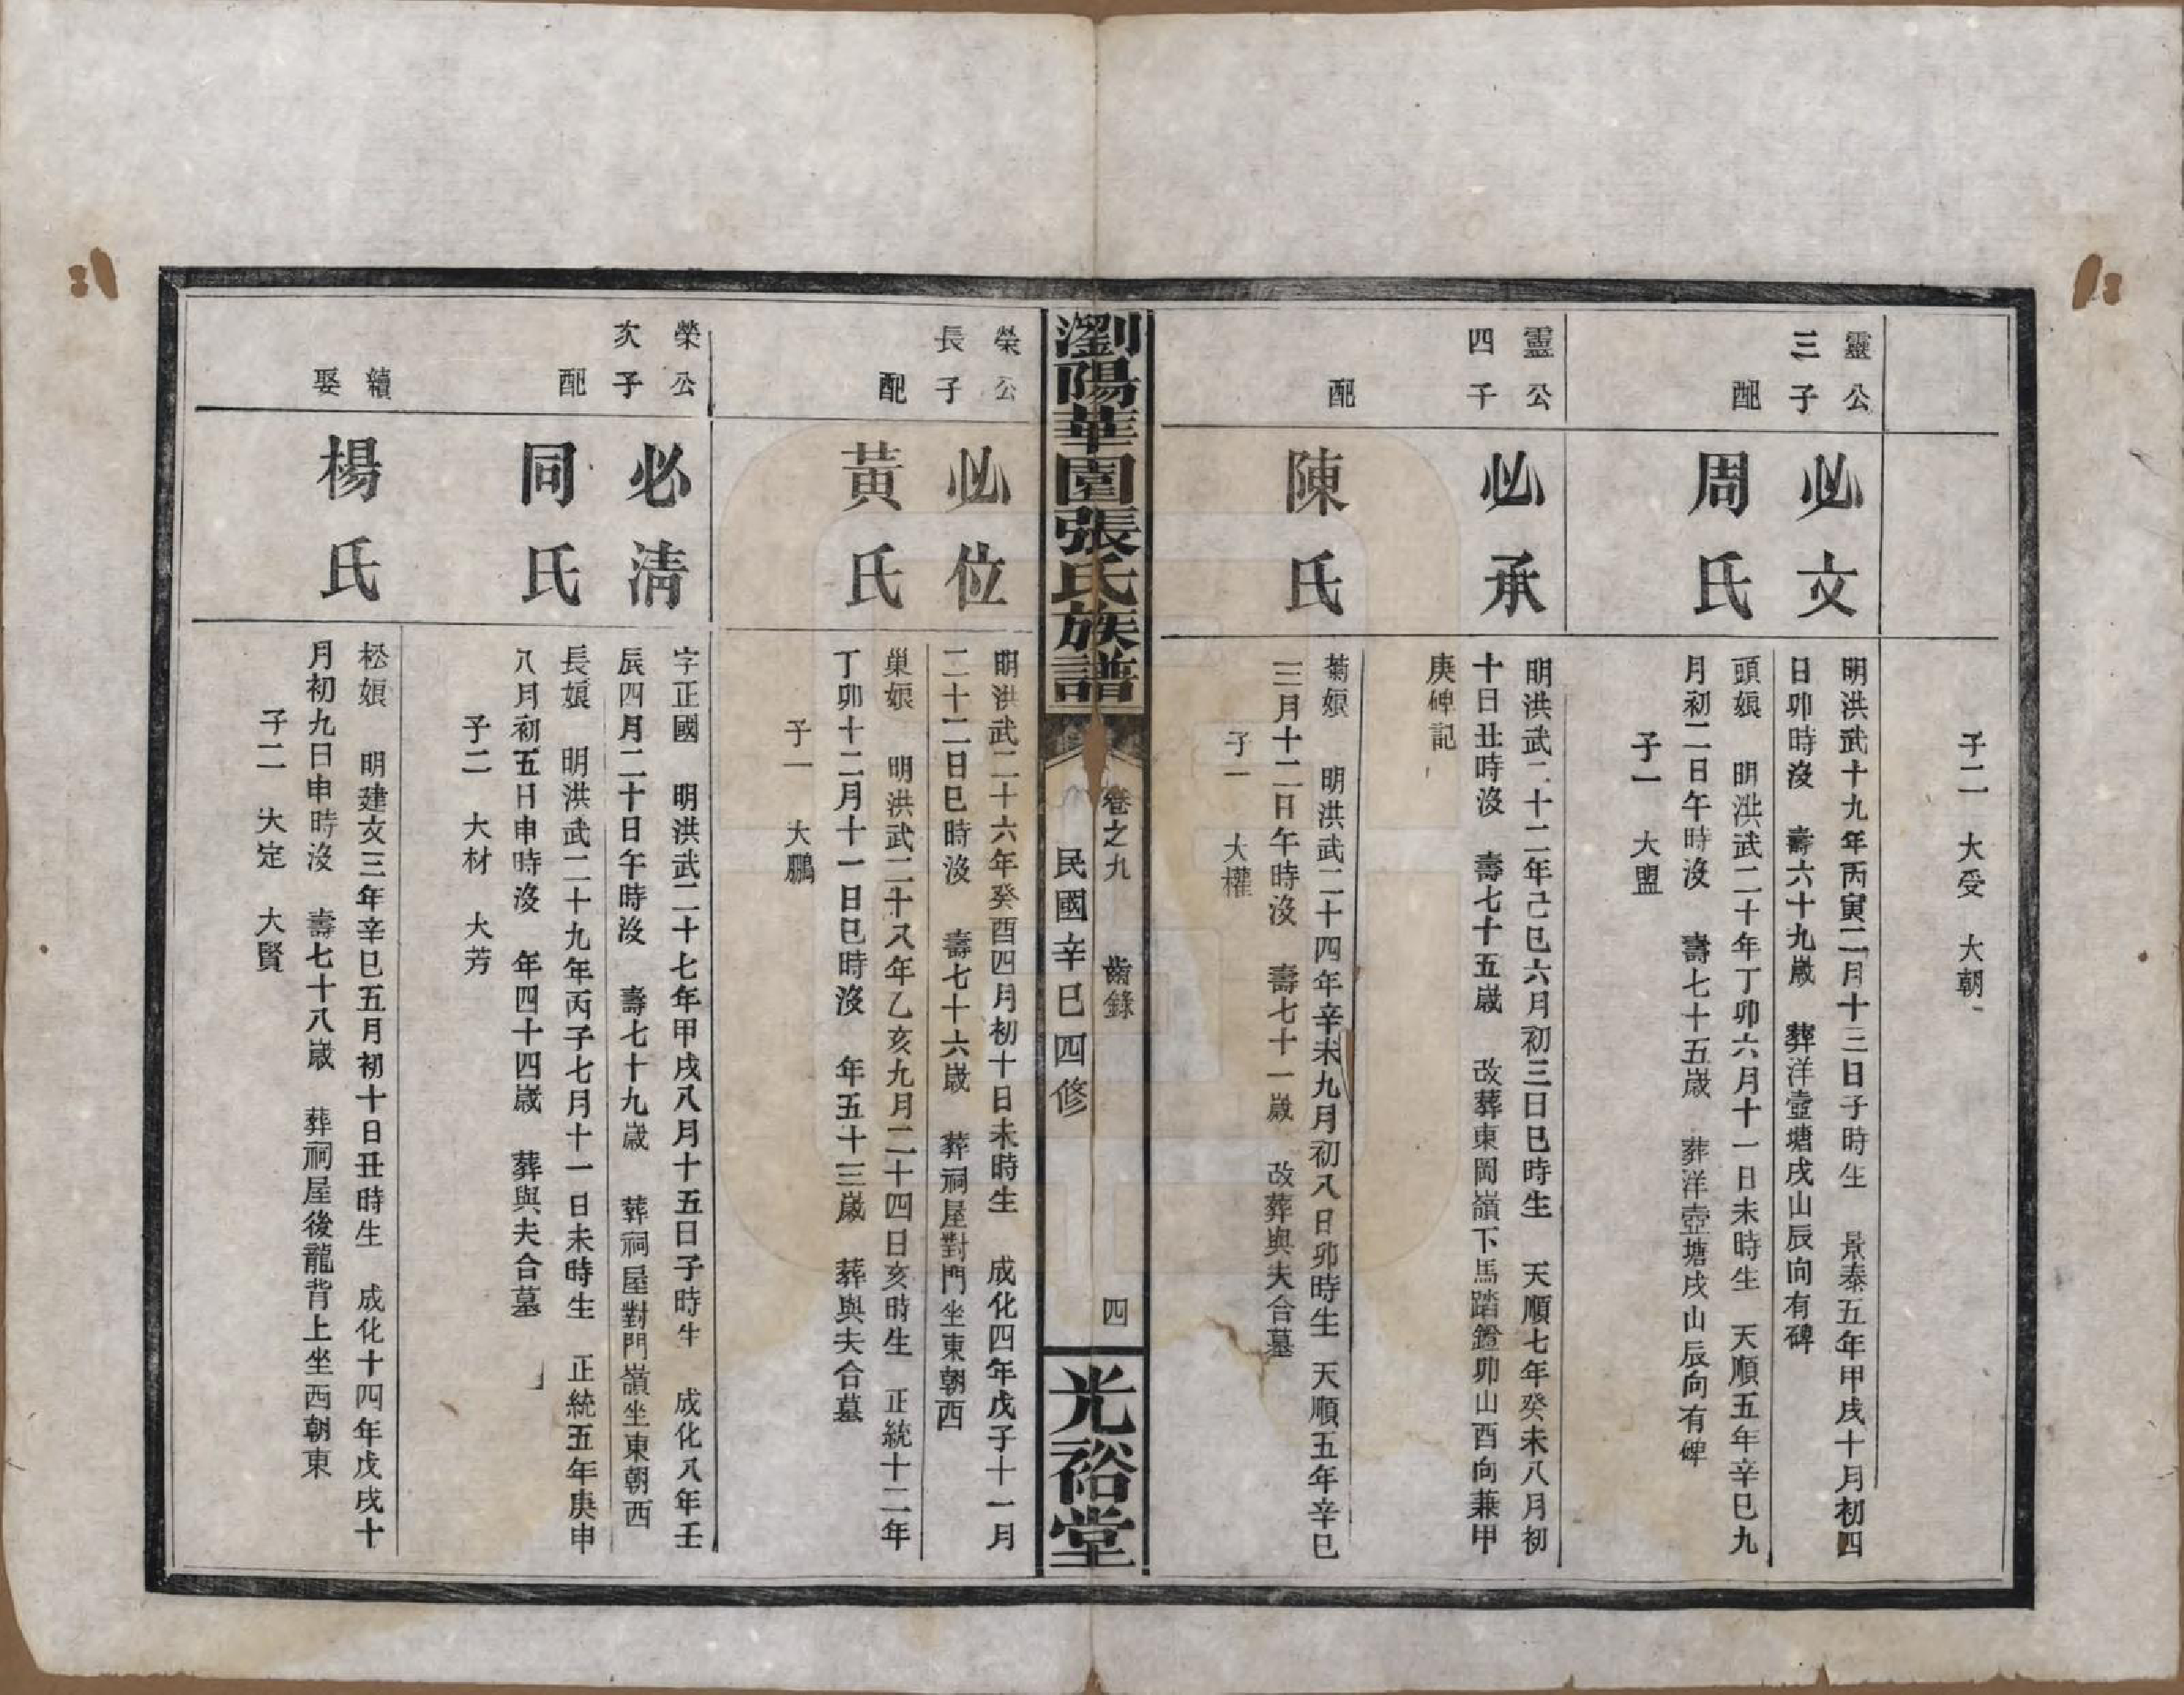 子二　大受　大朝
靈公三子　必文
明洪武十九年丙寅二月十三日子時生　景泰五年甲戌十月初四
日卯時沒　壽六十九歲　葬洋壼塘戌山辰向有碑
配　周氏
頭娘　明洪武二十年丁卯六月十一日未時生　天順五年辛巳九
月初二日午時沒　壽七十五歲　葬洋壼塘戌山辰向有碑
子一　大盟
靈公四子　必承
明洪武二十二年己巳六月初三日巳時生　天順七年癸未八月初
十日丑時沒　壽七十五歲　改葬東岡嶺下馬踏鐙卯山酉向兼甲
庚碑記
配　陳氏
菊娘　明洪武二十四年辛未九月初八日卯時生　天順五年辛巳
三月十二日午時沒　壽七十一歲　改葬與夫合墓
子一　大權
瀏陽華園張氏族譜
卷之九　齒錄　四
民國辛巳四修
光裕堂
榮公長子　必位
明洪武二十六年癸酉四月初十日未時生　成化四年戊子十一月
二十二日巳時沒　壽七十六歲　葬祠屋對門坐東朝西
配　黃氏
巢娘　明洪武二十八年乙亥九月二十四日亥時生　正統十二年
丁卯十二月十一日巳時沒　年五十三歲　葬與夫合墓
子一　大鵬
榮公次子　必清
字正國　明洪武二十七年甲戌八月十五日子時生　成化八年壬
辰四月二十日午時沒　壽七十九歲　葬祠屋對門嶺坐東朝西
配　同氏
長娘　明洪武二十九年丙子七月十一日未時生　正統五年庚申
八月初五日申時沒　年四十四歲　葬與夫合墓
子二　大材　大芳
續娶　楊氏
松娘　明建文三年辛巳五月初十日丑時生　成化十四年戊戌十
月初九日申時沒　壽七十八歲　葬祠屋後龍背上坐西朝東
子二　大定　大賢